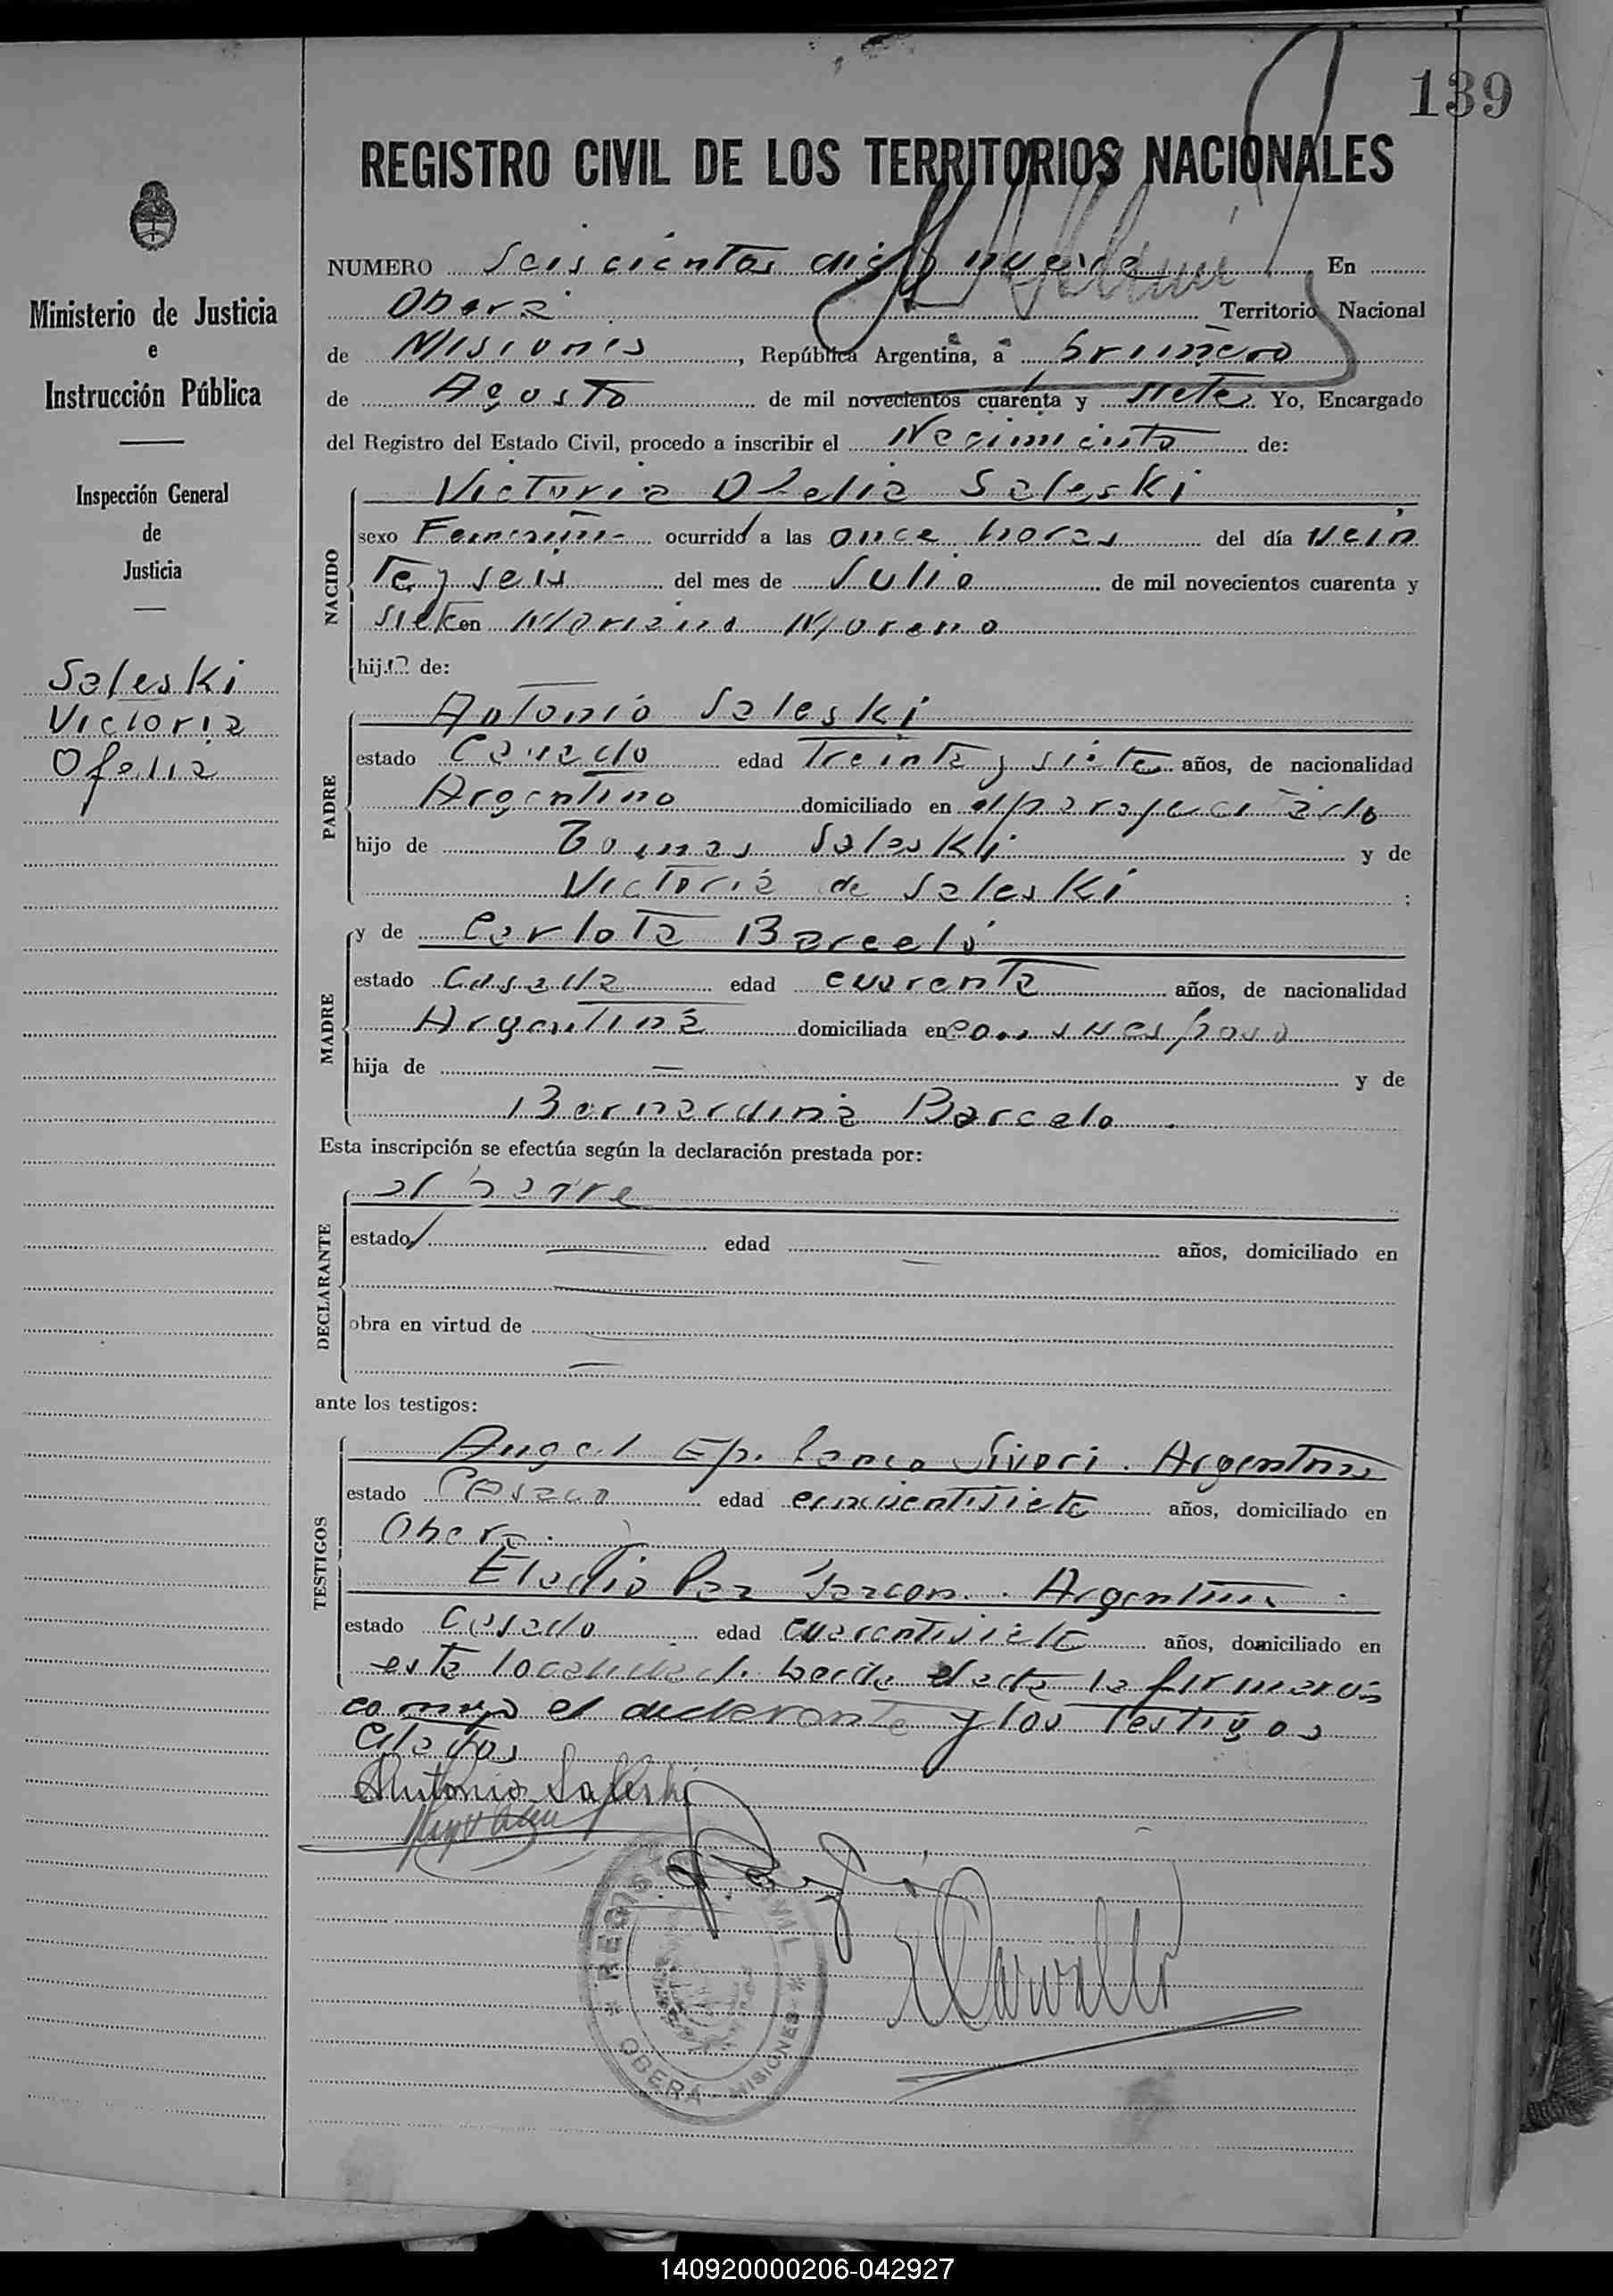 139
REGISTRO CIVIL DE LOS TERRITORIOS NACIONALES
Ministerio de Justicia
e
Instrucción Pública
Inspección General
de
Justicia
Saleski
Victoria
Ofelia
NUMERO Seiscientos diez nueve En
Oberá Territorio Nacional
de Misiones, República Argentina, a primero
de Agosto de mil novecientos cuarenta y siete Yo, Encargado
del Registro del Estado Civil, procedo a inscribir el Nacimiento de:
NACIDO
Victoria Ofelia Saleski
sexo Femenino ocurrido a las once horas del día vein
te y seis del mes de Julio de mil novecientos cuarenta y
siete en Mariano Moreno
hija de:
PADRE
Antonio Saleski
estado Casado edad Treinta y siete años, de nacionalidad
Argentino domiciliado en
hijo de Tomas Saleski y de
Victoria de Saleski ;
MADRE
y de Carlota Barceló
estado Casada edad cuarenta años, de nacionalidad
Argentina domiciliada en con su esposo
hija de — y de
Bernardina Barcelo
Esta inscripción se efectúa según la declaración prestada por:
DECLARANTE
el padre
estado edad años, domiciliado en
obra en virtud de
ante los testigos:
TESTIGOS
Angel Ep. Sivori. Argentino
estado Casado edad cincuentisiete años, domiciliado en
Oberá.
Eladio Paz Argentino
estado Casado edad cuarentisiete años, domiciliado en
esta localidad. Leída el acta la firmaron
conmigo el declarante y los testigos
citados
Antonio Saleski
REGISTRO
OBERÁ - MISIONES
140920000206-042927